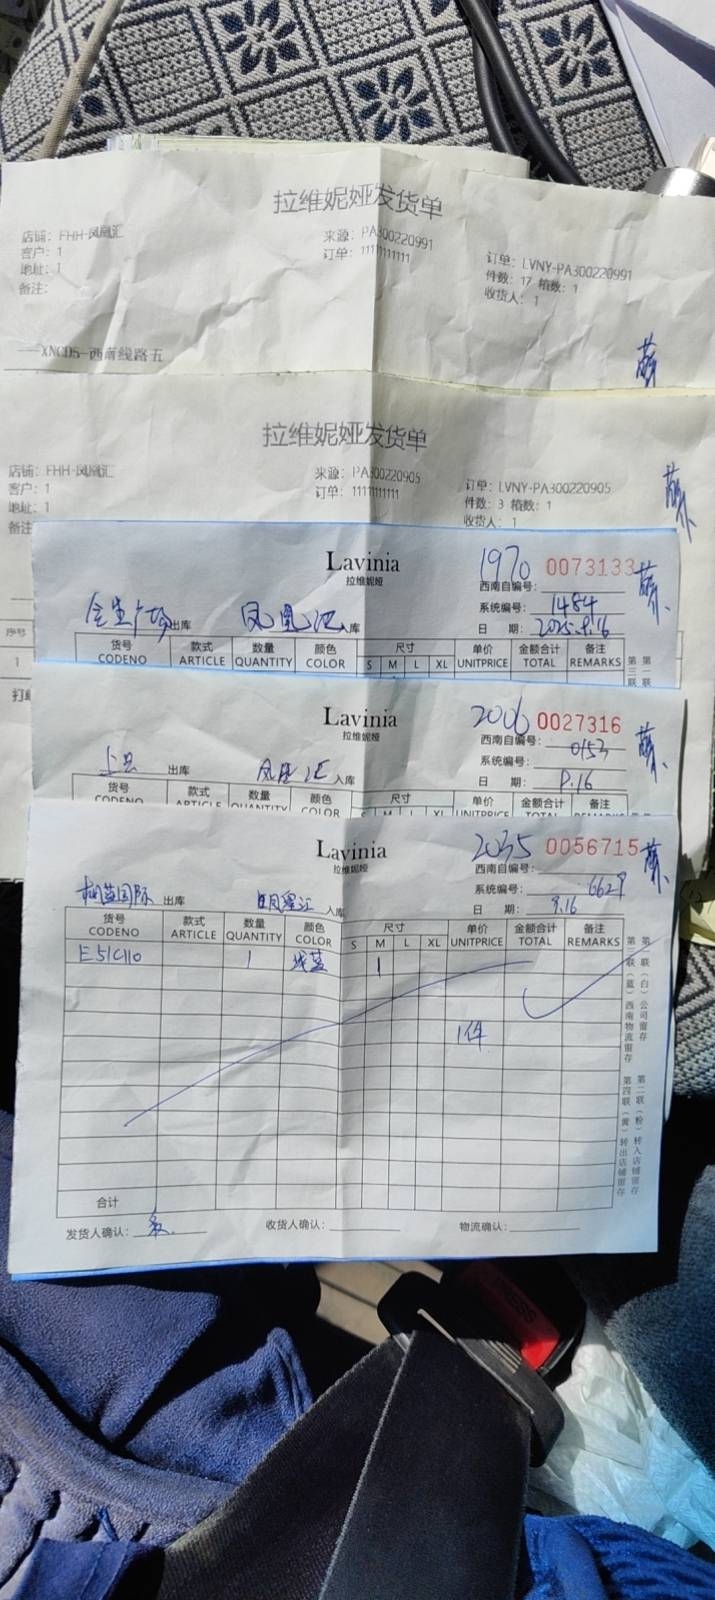 拉维妮娅发货单
店铺: FHH-凤凰汇
来源: PA300220991
订单: LVNY-PA300220991
客户: 1
订单: 1111111111
件数: 17 箱数: 1
地址: 1
收货人: 1
备注:
XNCD5-西南线路五
拉维妮娅发货单
店铺: FHH-凤凰汇
来源: PA300220905
订单: LVNY-PA300220905
客户: 1
订单: 1111111111
件数: 3 箱数: 1
地址: 1
收货人: 1
备注
序号
1
打单
Lavinia
拉维妮娅
1970 0073133
西南自编号:
系统编号: 1484
出库 凤凰汇 入库
日 期: 2025.9.16
货号 款式 数量 颜色 尺寸 单价 金额合计 备注
CODENO ARTICLE QUANTITY COLOR S M L XL UNITPRICE TOTAL REMARKS
第一联
第三联
Lavinia
拉维妮娅
2006 0027316
西南自编号: 0153
系统编号:
出库 凤凰汇 入库
日 期: 9.16
货号 款式 数量 颜色 尺寸 单价 金额合计 备注
CODENO ARTICLE QUANTITY COLOR S M L XL UNITPRICE TOTAL REMARKS
Lavinia
拉维妮娅
2035 0056715
西南自编号:
系统编号: 6629
出库 入库
日 期: 9.16
货号 款式 数量 颜色 尺寸 单价 金额合计 备注
CODENO ARTICLE QUANTITY COLOR S M L XL UNITPRICE TOTAL REMARKS
E51C110 1 浅蓝 1
1件
合计
发货人确认: 收货人确认: 物流确认:
第一联(白)公司留存
第二联(粉)转入店铺留存
第三联(蓝)西南物流留存
第四联(黄)转出店铺留存
PRESS